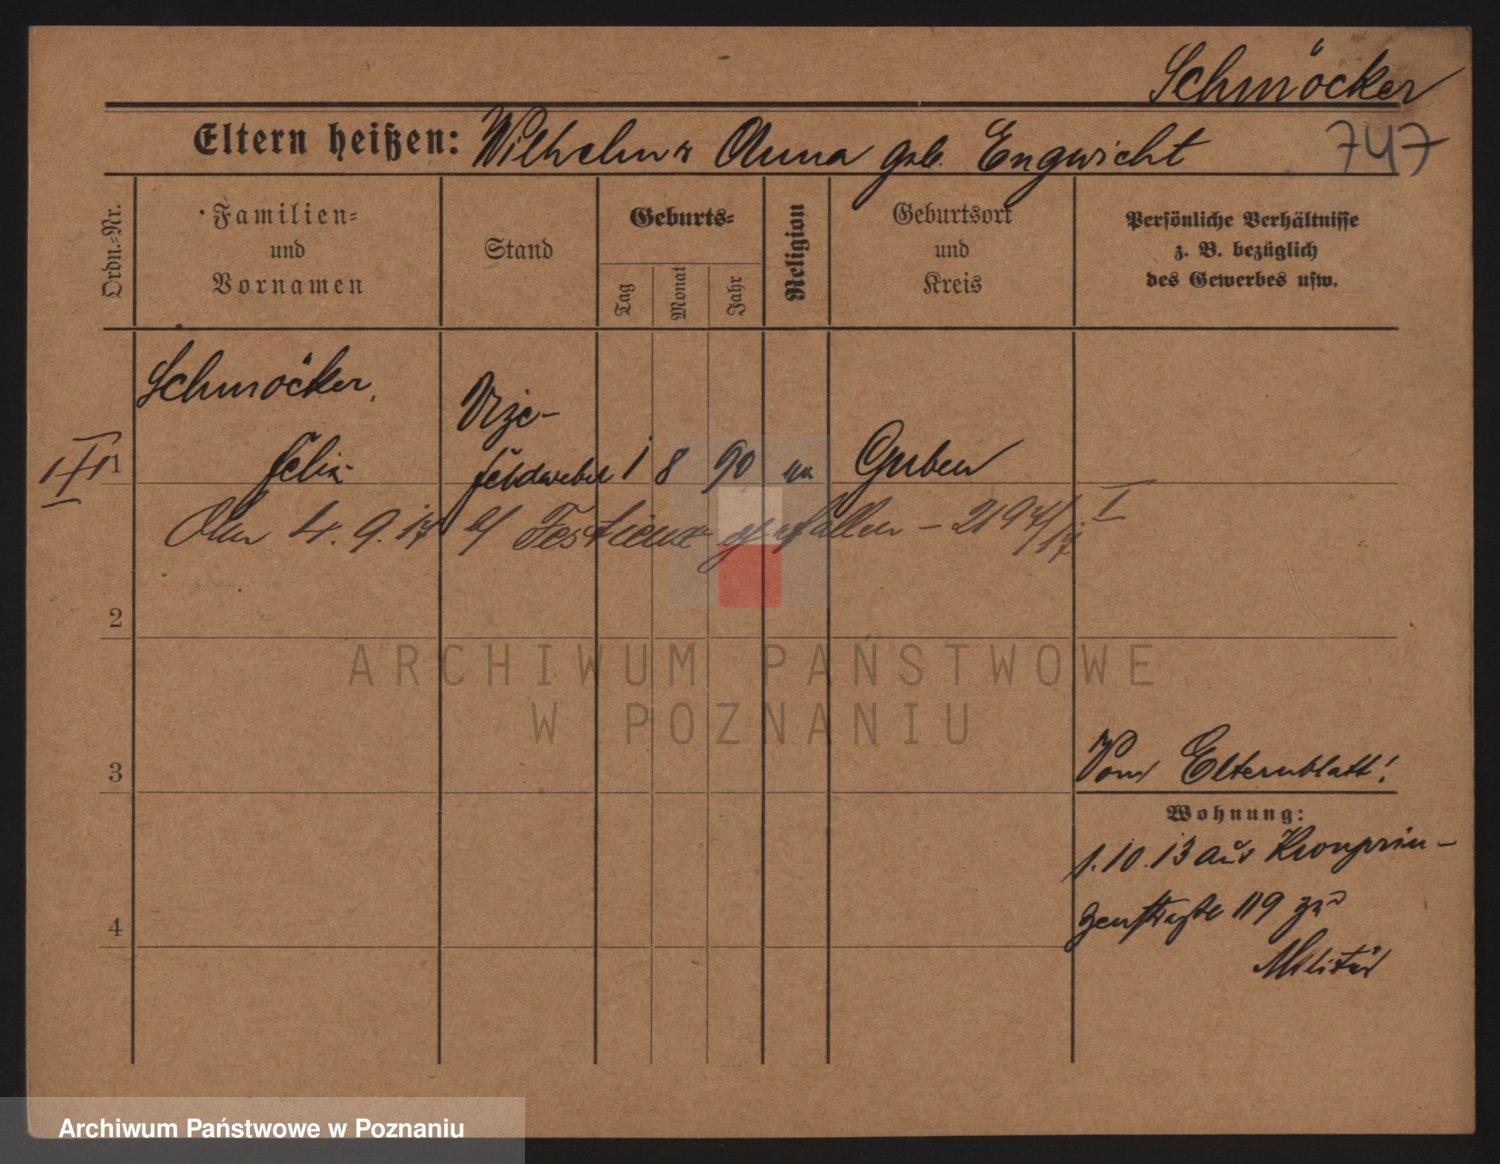 Schmöcker
Eltern heißen: Wilhelm u Anna geb. Engwicht
747
Ordn.-Nr.
Familien- und Vornamen
Stand
Geburts-
Tag
Monat
Jahr
Religion
Geburtsort und Kreis
Persönliche Verhältnisse z. B. bezüglich des Gewerbes usw.
Schmöcker,
Vize-
1 Felix feldwebel 1 8 90 Guben
Am 4. 9. 17 b/ Festieux gefallen – 2197/17 I
2
ARCHIWUM PAŃSTWOWE
W POZNANIU
3
Vom Elternblatt!
Wohnung:
1.10.13 aus Kronprin-
zenstraße 119 zu
4
Militär
Archiwum Państwowe w Poznaniu